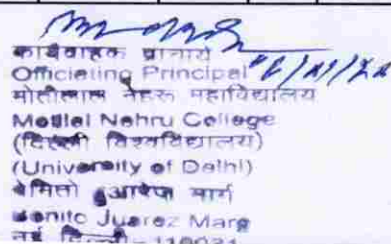 कार्यवाहक प्राचार्य
Officiating Principal
मोतीलाल नेहरू महाविद्यालय
Motilal Nehru College
(दिल्ली विश्वविद्यालय)
(University of Delhi)
बेनितो जुआरेज मार्ग
Benito Juarez Marg
नई दिल्ली - 110021